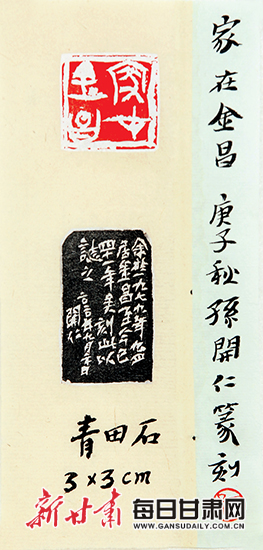 家在金昌 庚子秋孫開仁篆刻
家在金昌
余於一九七九年
居金昌至今已
四一年矣刻此以
誌之
開仁
青田石
3×3cm
新甘肃
每日甘肃网
WWW.GANSUDAILY.COM.CN